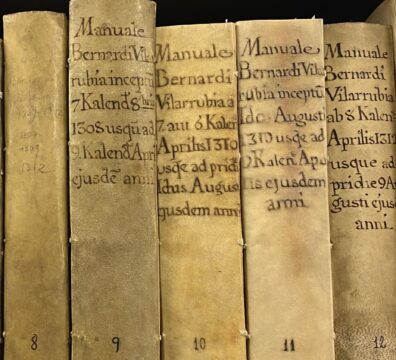 1312
8
Manuale
Bernardi Vila
rubia inceptũ
7 Kalend 8
1308 usque ad
9. Kalend Apri
ejusdē anni.
9
Manuale
Bernardi
Vilarrubia a
7. aut 8 Kalen
Aprilis 1310
usqe ad prid
Idus Augus
ejusdem anni
10
Manuale
Bernardi Vila
rubia inceptũ
Idus Augusti
1310 usqe ad
Kalen Apri
lis ejusdem
anni.
11
Manuale
Bernardi
Vilarrubia
ab 8 Kalen
Aprilis 1312
usque ad
pridie 9 Au
gusti ejus
anni.
12